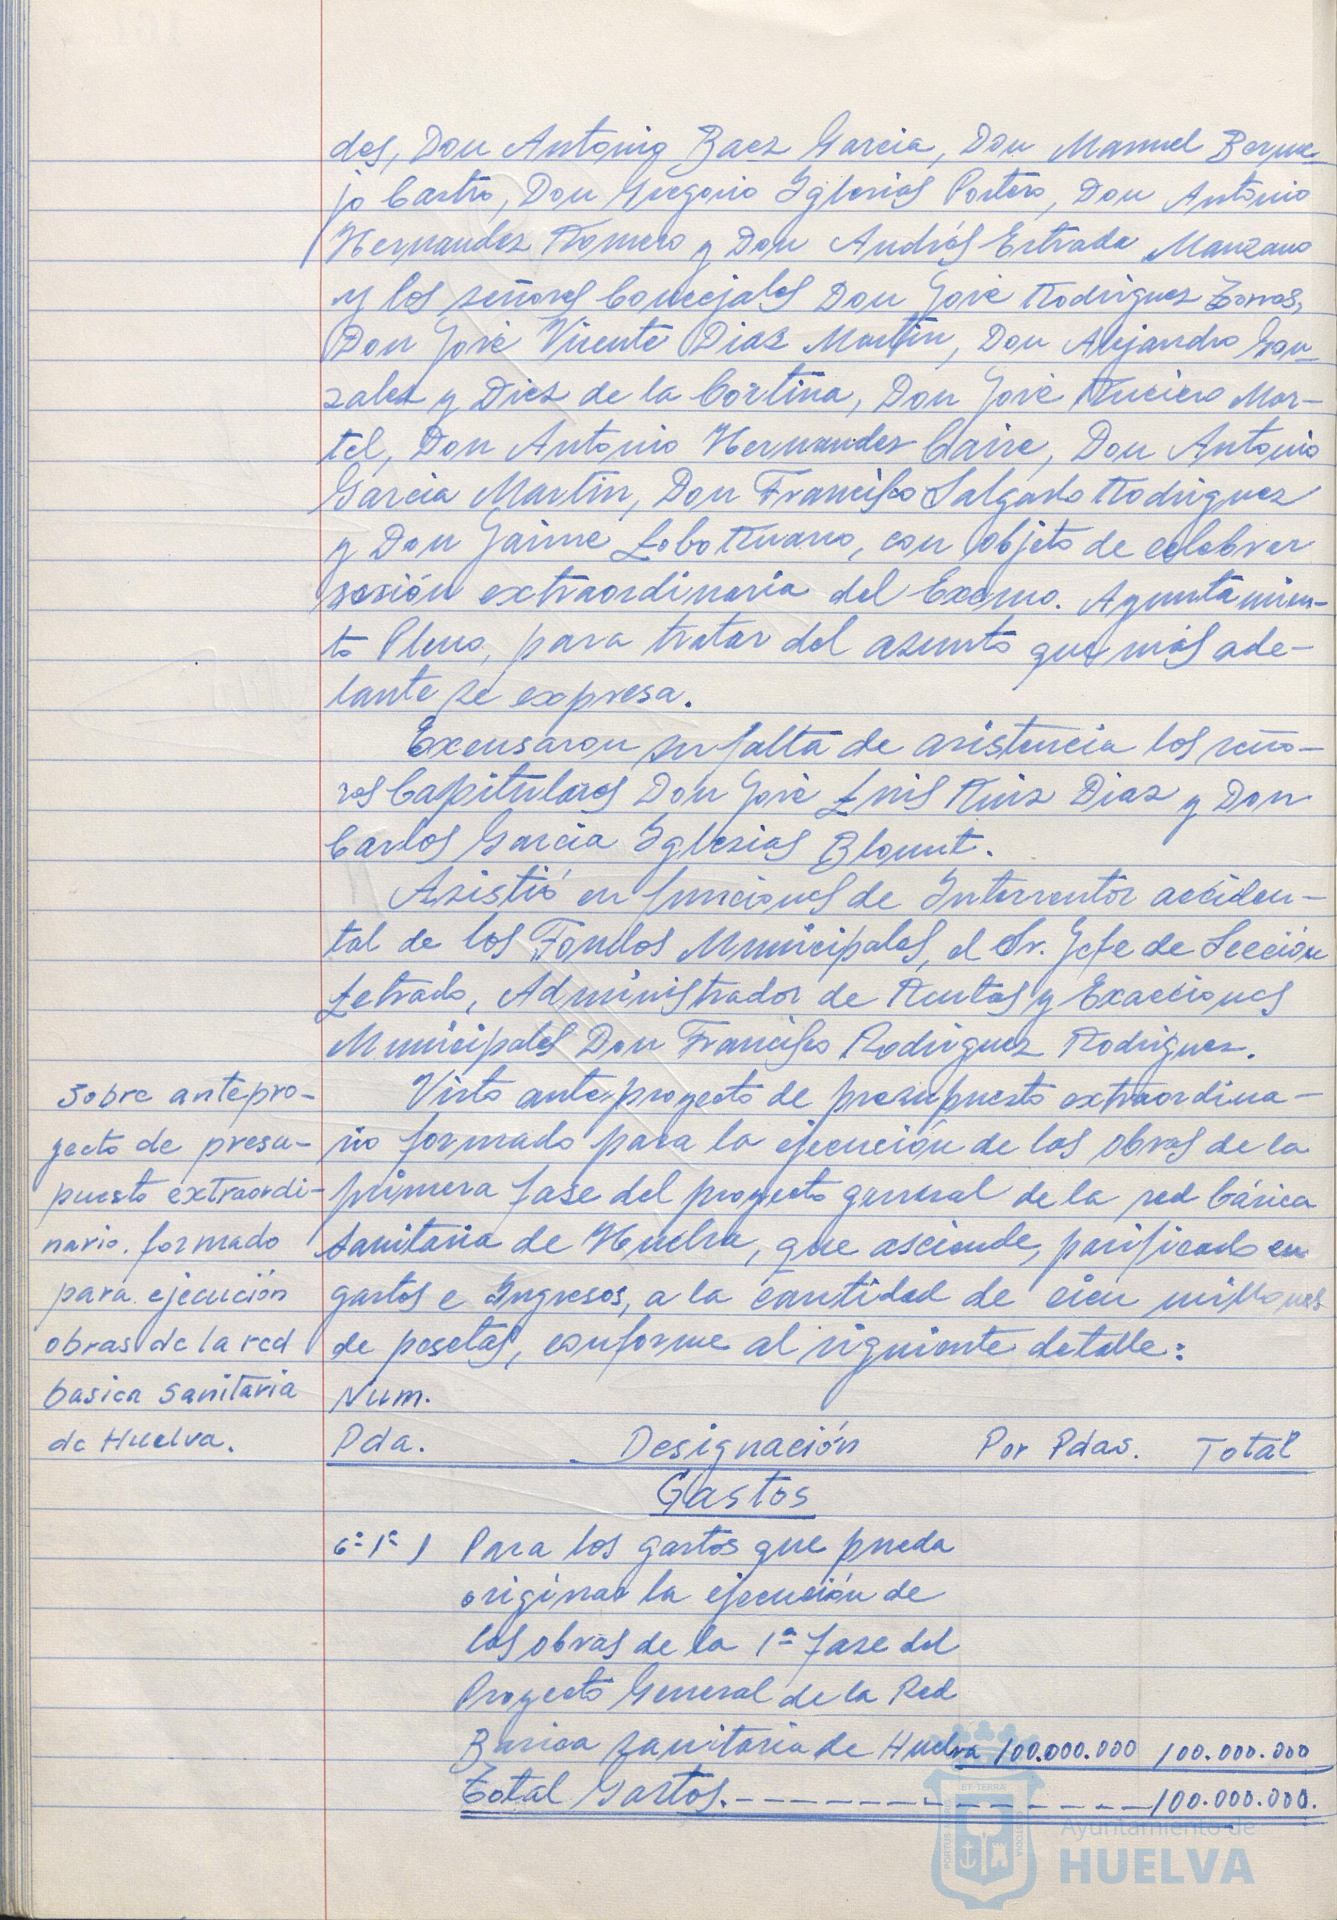 des, Don Antonio Baez Garcia, Don Manuel Berme-
jo Castro, Don Gregorio Iglesias Portero, Don Antonio
Hernandez Romero y Don Andrés Estrada Manzano
y los señores Concejales Don José Rodriguez Torres,
Don José Vicente Diaz Martin, Don Alejandro Gon-
zalez y Diez de la Cortina, Don José Ruciero Mar-
tel, Don Antonio Hernandez Caire, Don Antonio
Garcia Martin, Don Francisco Salgado Rodriguez
y Don Jaime Lobo Ruano, con objeto de celebrar
sesión extraordinaria del Excmo. Ayuntamien-
to Pleno, para tratar del asunto que más ade-
lante se expresa.
Excusaron su falta de asistencia los seño-
res Capitulares Don José Luis Ruiz Diaz y Don
Carlos Garcia Iglesias Blount.
Asistió en funciones de Interventor acciden-
tal de los Fondos Municipales, el Sr. Jefe de Sección
Letrado, Administrador de Rentas y Exacciones
Municipales Don Francisco Rodriguez Rodriguez.
Sobre antepro-
yecto de presu-
puesto extraordi-
nario formado
para ejecución
obras de la red
basica Sanitaria
de Huelva.
Visto anteproyecto de presupuesto extraordina-
rio formado para la ejecución de las obras de la
primera fase del proyecto general de la red básica
Sanitaria de Huelva, que asciende, parificado en
gastos e Ingresos, a la cantidad de cien millones
de pesetas, conforme al siguiente detalle:
Num.
Pda. Designación Por Pdas. Total
Gastos
6º 1º 1 Para los gastos que pueda
originar la ejecución de
las obras de la 1ª fase del
Proyecto General de la Red
Basica Sanitaria de Huelva 100.000.000 100.000.000
Total Gastos. - - - - - - - - - - 100.000.000.
Ayuntamiento de
HUELVA